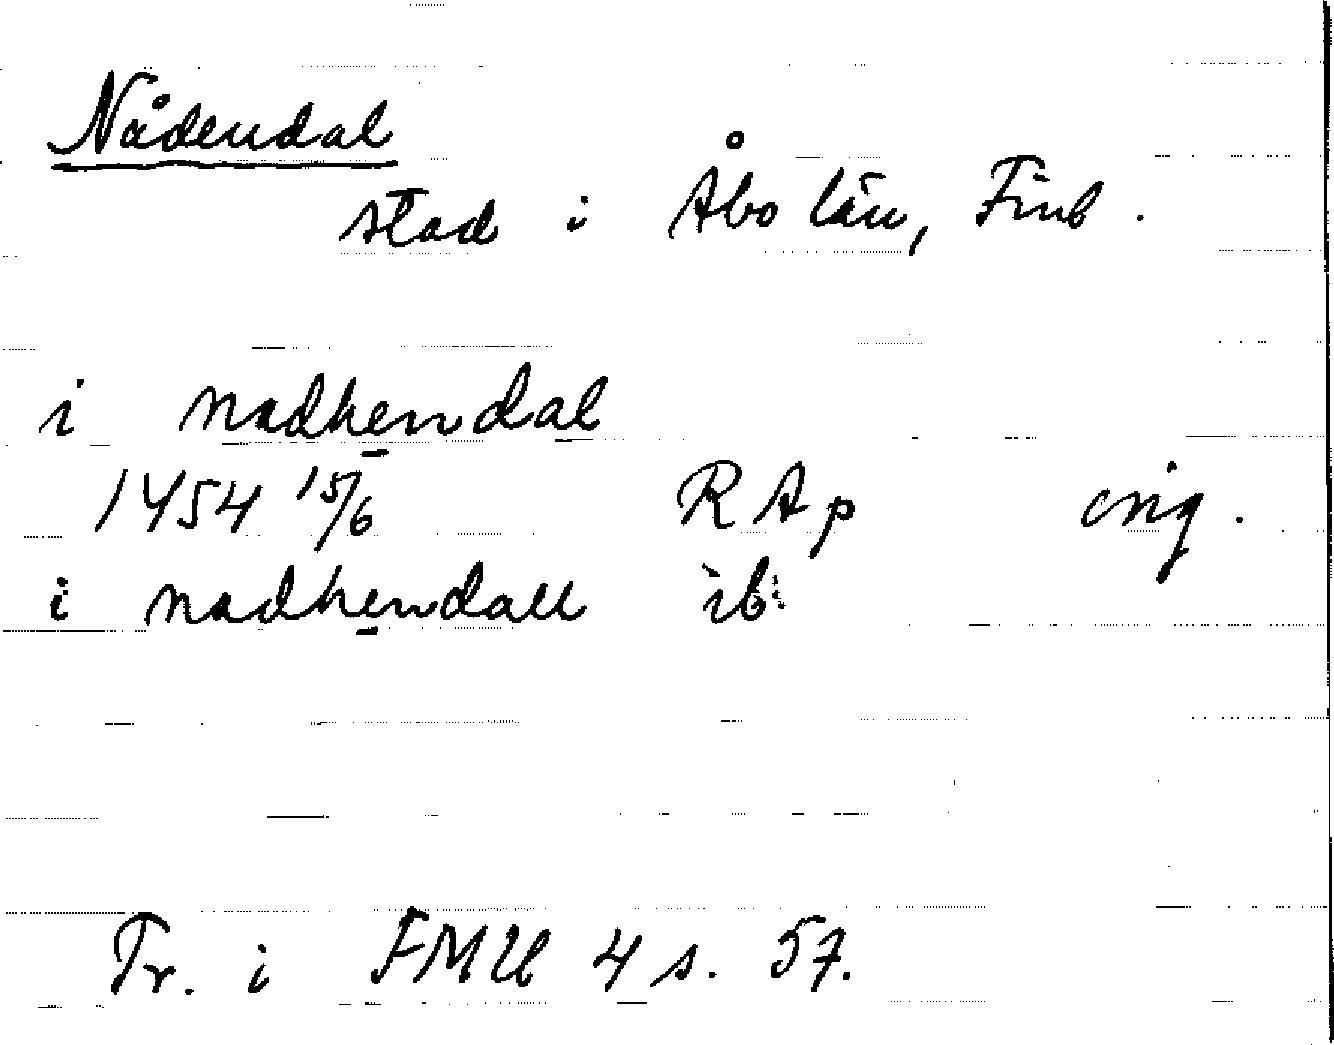 Nådendal
stad i Åbo län, Finl.
i nadhendal
1454 15/6 RAp orig.
i nadhendall ib.
Tr. i FMU 4 s. 57.